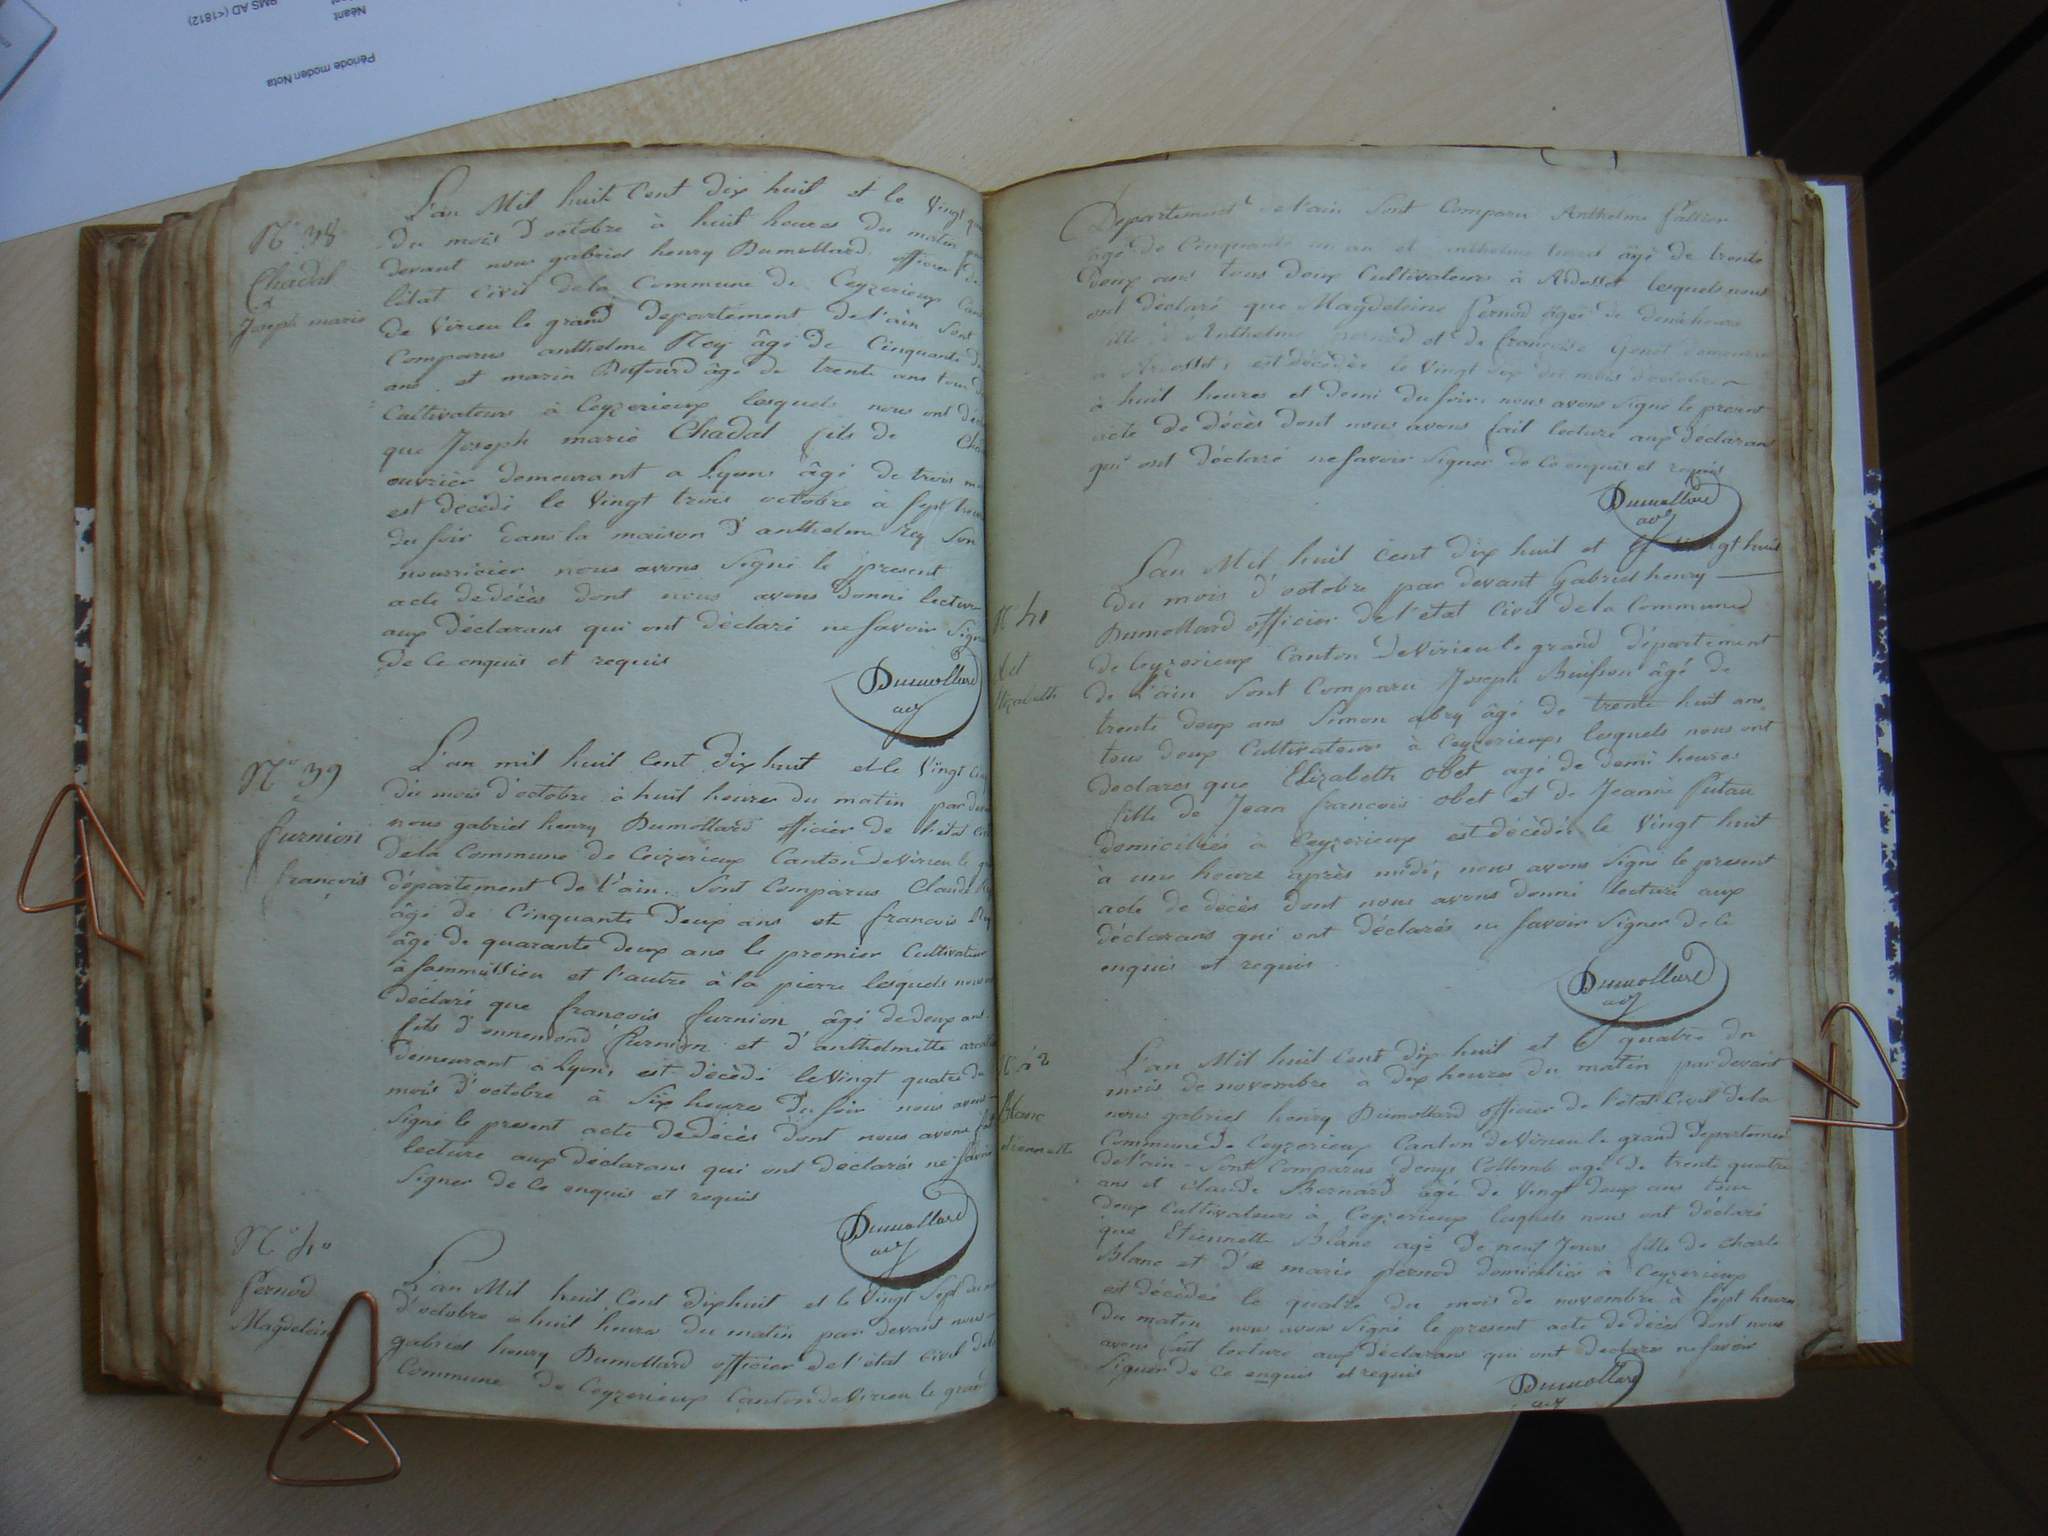 BMS AD (<1812)
Néant
Période moder Nota
N° 38
Chadal
Joseph marie
L'an Mil huit Cent dix huit et le Vingt
du mois d'octobre à huit heures du matin
devant nous gabriel henry Dumollard officier de
létat Civil dela Commune de Ceyzerieux
de Virieu le grand Departement de l'ain Sont
Comparus anthelme Rey âgé de Cinquante
ans et marin Dufourd âgé de trente ans tous
Cultivateurs à Ceyzerieux lesquels nous ont
que Joseph marie Chadal fils de
ouvrier demeurant a Lyon âgé de trois
est décédé le Vingt trois octobre à Sept
du soir dans la maison d'anthelme Rey Son
nourricier nous avons Signé le present
acte de décès dont nous avons donné lecture
aux déclarans qui ont déclaré ne savoir
de Ce enquis et requis
Dumollard
N° 39
furnion
françois
L'an mil huit Cent dix huit et le Vingt
du mois d'octobre à huit heures du matin
nous gabriel henry Dumollard officier de l'état
dela Commune de Ceizerieux Canton de Virieu le
département de l'ain. Sont Comparus Claude
âgé de Cinquante deux ans et francois
âgé de quarante deux ans le premier Cultivateur
à et l'autre à la pierre lesquels
déclaré que françois furnion âgé de deux ans
fils d'ennemond furnion et d'anthelmette
demeurant à Lyon, est décédé le Vingt quatre du
mois d'octobre à Six heures du soir nous avons
Signé le present acte de décès dont nous avons
lecture aux déclarans qui ont déclarés ne savoir
Signer de Ce enquis et requis
Dumollard
N° 40
Pernod
Magdeleine
L'an Mil huit Cent dix huit et le Vingt Sept
d'octobre à huit heures du matin par devant nous
gabriel henry Dumollard officier de l'état Civil dela
Commune de Ceyzerieux Canton de Virieu le grand
Departement de l'ain Sont Comparu Anthelme
âgé de Cinquante un an et anthelme âgé de trente
deux ans tous deux Cultivateurs à Ardosset lesquels nous
ont déclaré que Magdeleine Pernod âgée de demi heure
fille d'Anthelme Pernod et de françoise
a Ardosset, est décédée le Vingt Six du mois d'octobre
à huit heures et demi du soir, nous avons Signé le present
acte de décès dont nous avons fait lecture aux déclarans
qui ont déclaré ne savoir Signer de Ce enquis et requis
Dumollard
N° 41
Obet
Elizabeth
L'an Mil huit Cent dix huit et le vingt huit
du mois d'octobre par devant Gabriel henry
Dumollard officier de l'état Civil dela Commune
de Ceyzerieux Canton de Virieu le grand département
de l'ain Sont Comparu Joseph Buisson âgé de
trente deux ans Simon abry âgé de trente huit ans
tous deux Cultivateurs à Ceyzerieux, lesquels nous ont
declarés que Elizabeth Obet agé de demi heures
fille de Jean francois Obet et de Jeanne
domiciliés à Ceyzerieux est décédée le Vingt huit
à une heure après midi, nous avons Signé le present
acte de décès dont nous avons donné lecture aux
déclarans qui ont déclarés ne savoir Signer de Ce
enquis et requis
Dumollard
N° 42
Blanc
Etiennette
L'an Mil huit Cent dix huit et le quatre du
mois de novembre à dix heures du matin par devant
nous gabriel henry Dumollard officier de l'état Civil dela
Commune de Ceyzerieux Canton de Virieu le grand Departement
de l'ain Sont Comparus denys Collomb agé de trente quatre
ans et Claude Bernard âgé de Vingt deux ans tous
deux Cultivateurs à Ceyzerieux lesquels nous ont déclaré
que Etiennette Blanc agé de neuf Jours fille de Charle
Blanc et d'e marie pernod domiciliés à Ceyzerieux
est décédée le quatre du mois de novembre à Sept heures
du matin nous avons Signé le present acte de décès dont nous
avons fait lecture aux déclarans qui ont declarés ne savoir
Signer de Ce enquis et requis
Dumollard